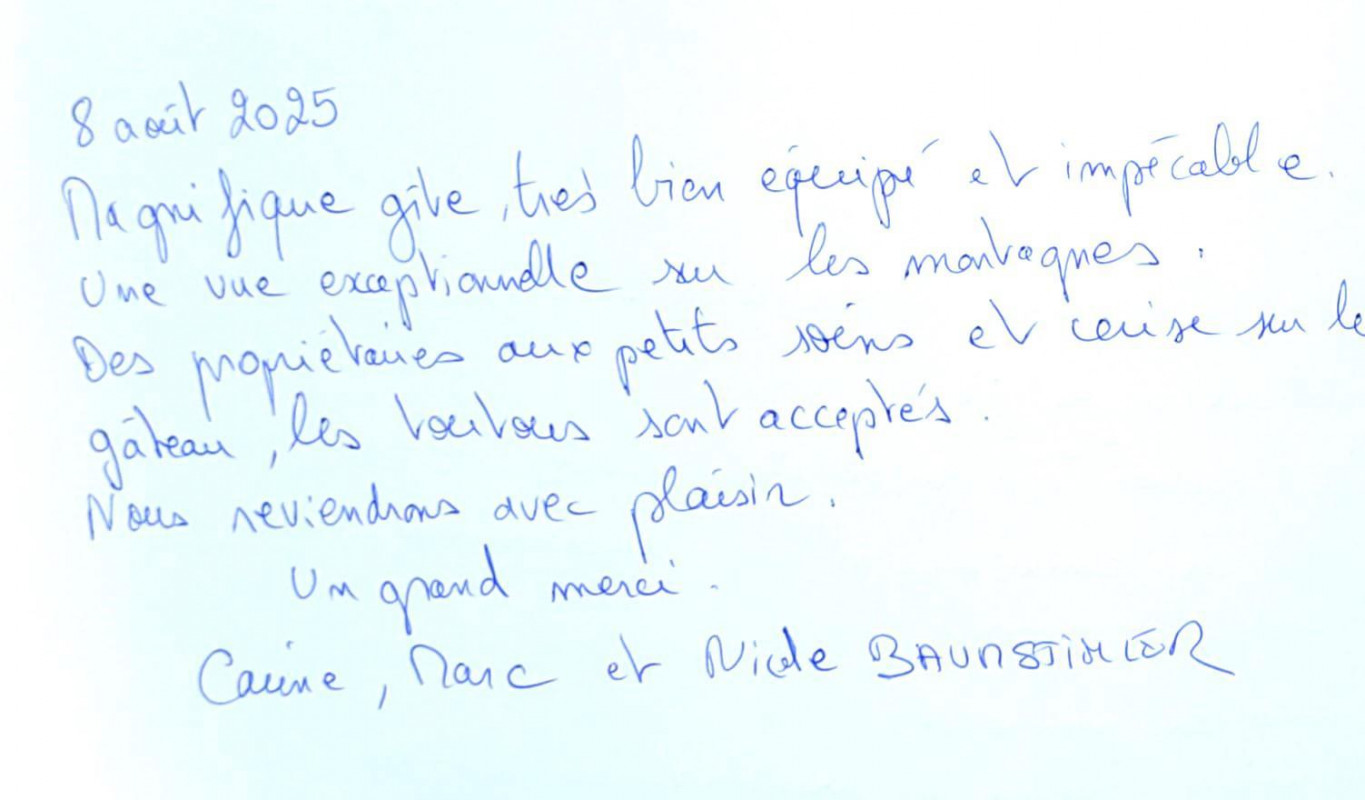 8 août 2025
Magnifique gîte, très bien équipé et impécable.
Une vue exceptionnelle sur les montagnes.
Des propriétaires aux petits soins et cerise sur le
gâteau, les toutous sont acceptés.
Nous reviendrons avec plaisir.
Un grand merci.
Carine, Marc et Nicole